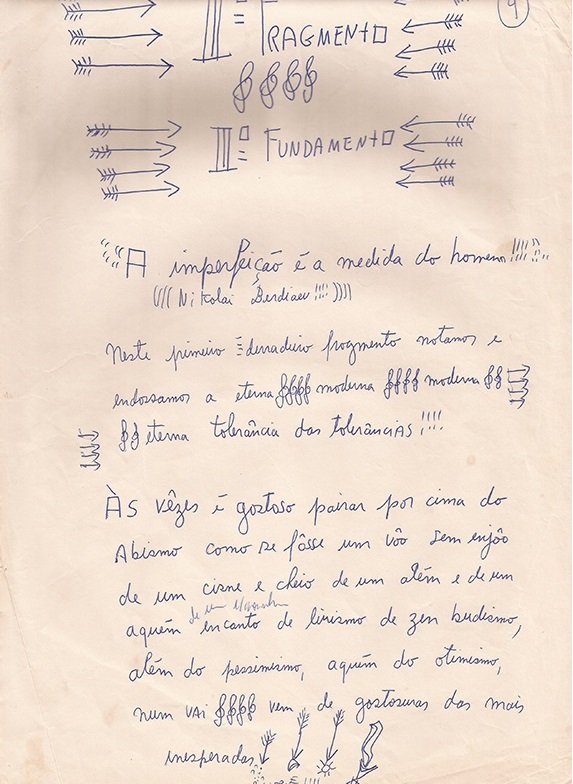 4
II = FRAGMENTO
IIº = FUNDAMENTO
"""A imperfeição é a medida do homem!!!!"..
(((( Nikolai Berdiaev !!!! ))))
Neste primeiro = derradeiro fragmento notamos e
endossamos a eterna moderna moderna
eterna tolerância das tolerânciAs!!!!
Às vêzes é gostoso pairar por cima do
Abismo como se fôsse um vôo sem enjôo
de um cisne e cheio de um além e de um
de um
aquém encanto de lirismo de zen budismo,
além do pessimismo, aquém do otimismo,
num vAi vem de gostosuras das mais
inesperadas